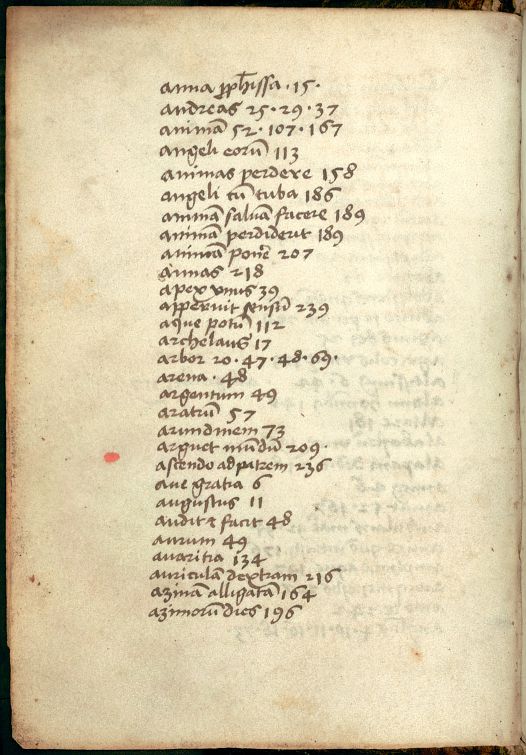 anna ꝓph̄issa · 15 ·
andreas 25 · 29 · 37
animā 52 · 107 · 167
angeli eorū 113
animas perdere 158
angeli cū tuba 186
animā saluā facere 189
animā perdiderit 189
animā ponēre 207
annas 218
apex vnus 39
apperuit sensū 239
aque potū 112
archelaus 17
arbor 20 · 47 · 48 · 69 ·
arena · 48
argentum 49
aratrū 57
arundinem 73
arguet mūdū 209 ·
ascendo ad patrem 236
aue gratia 6
augustus 11
audit ⁊ facit 48
aurum 49
auaritia 134
auriculā dextram 216
azinā alligatā 164
azimorū dies 196